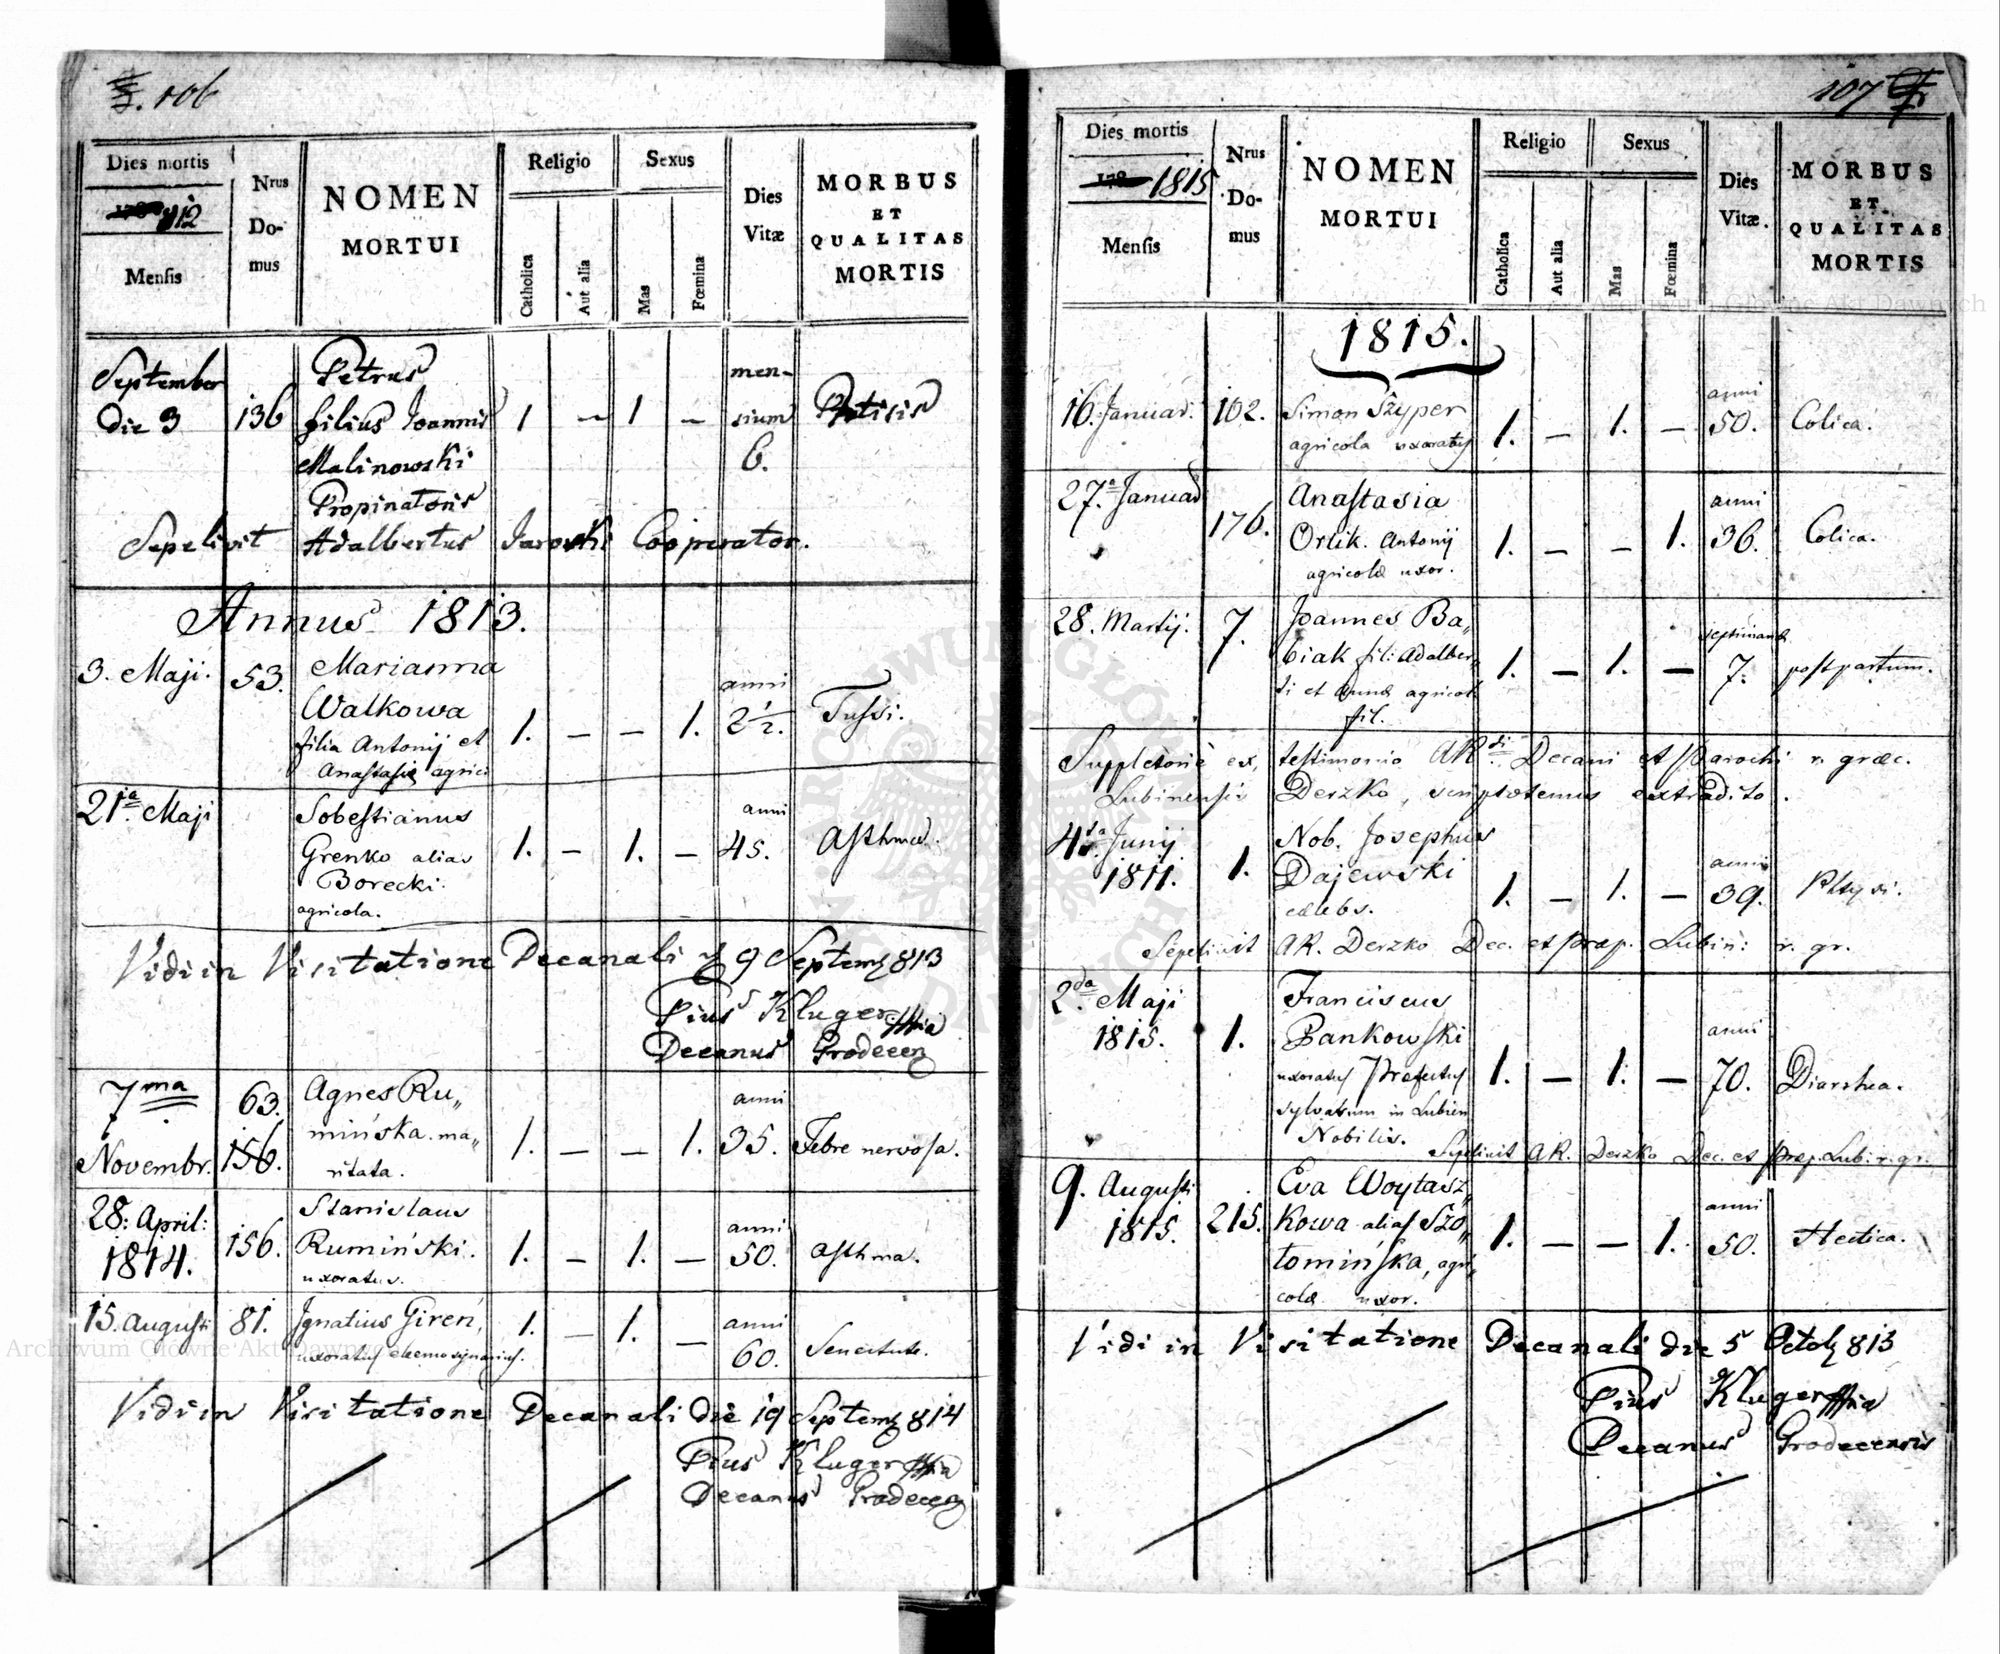 106
Dies mortis
812
Mensis
Nrus
Do-
mus
NOMEN
MORTUI
Religio
Catholica
Aut alia
Sexus
Mas
Fœmina
Dies
Vitæ
MORBUS
ET
QUALITAS
MORTIS
September
die 3
136
Petrus
filius Joannis
Malinowski
Propinatoris
1 – 1 –
men-
sium
6.
Sepelivit Adalbertus Cooperator.
Annus 1813.
3. Maji. 53.
Marianna
Walkowa
filia Antonij et
Anastasiæ agric
1. – – 1.
anni
2 1/2.
Tussi.
21a. Maji
Sobestianus
Grenko alias
Borecki.
agricola.
1. – 1. –
anni
45.
Asthma.
Vidi in Visitatione Decanali 9 Septemb 813
Pius Kluger
Decanus Grodecen
7ma
Novembr.
63.
156.
Agnes Ru„
mińska. ma„
ritata.
1. – – 1.
anni
35.
Febre nervosa.
28: April:
1814.
156.
Stanislaus
Rumiński.
uxoratus.
1. – 1. –
anni
50.
Asthma.
15. Augusti
81.
Ignatius Giren,
uxoratus eleemosynarius.
1. – 1. –
anni
60.
Senectute.
Vidi in Visitatione Decanali die 19 Septemb 814
Pius Kluger
Decanus Grodecen
107
Dies mortis
178 1815
Mensis
Nrus
Do-
mus
NOMEN
MORTUI
Religio
Catholica
Aut alia
Sexus
Mas
Fœmina
Dies
Vitæ.
MORBUS
ET
QUALITAS
MORTIS
1815.
16. Januar.
102.
Simon Szyper
agricola uxoratus
1. – 1. –
anni
50.
Colica.
27.a Januar
176.
Anastasia
Orlik. Antonij
agricolæ uxor.
1. – – 1.
anni
36.
Colica.
28. Martij.
7.
Joannes Ba„
biak fil: Adalber„
ti et Annæ agricol.
fil.
1. – 1. –
septimanæ
7.
post partum.
Suppletorie ex, testimonio AR.di Decani et Parochi r. græc.
Lubinensis Derzko, scriptotenus extradito.
4ta Junij
1811.
1.
Nob. Josephus
Dajewski
cælebs.
1. – 1. –
anni
39.
Phtysi.
Sepelivit AR. Derzko Dec. et præp. Lubin: r. gr.
2.da Maji
1815.
1.
Franciscus
Bankowski
uxoratus Præfectus
sylvarum in Lubien
Nobilis.
1. – 1. –
anni
70.
Diarrhea.
Sepelivit AR. Derzko Dec. et Præp. Lub: r. gr.
9. Augusti
1815.
215.
Eva Woytasz„
kowa alias Szo„
tomińska, agri„
colæ uxor.
1. – – 1.
anni
50.
Hectica.
Vidi in Visitatione Decanali die 5 Octob 815
Pius Kluger
Decanus Grodecensis
Archiwum Główne Akt Dawnych
Archiwum Główne Akt Dawnych
ARCHIWUM GŁÓWNE AKT DAWNYCH